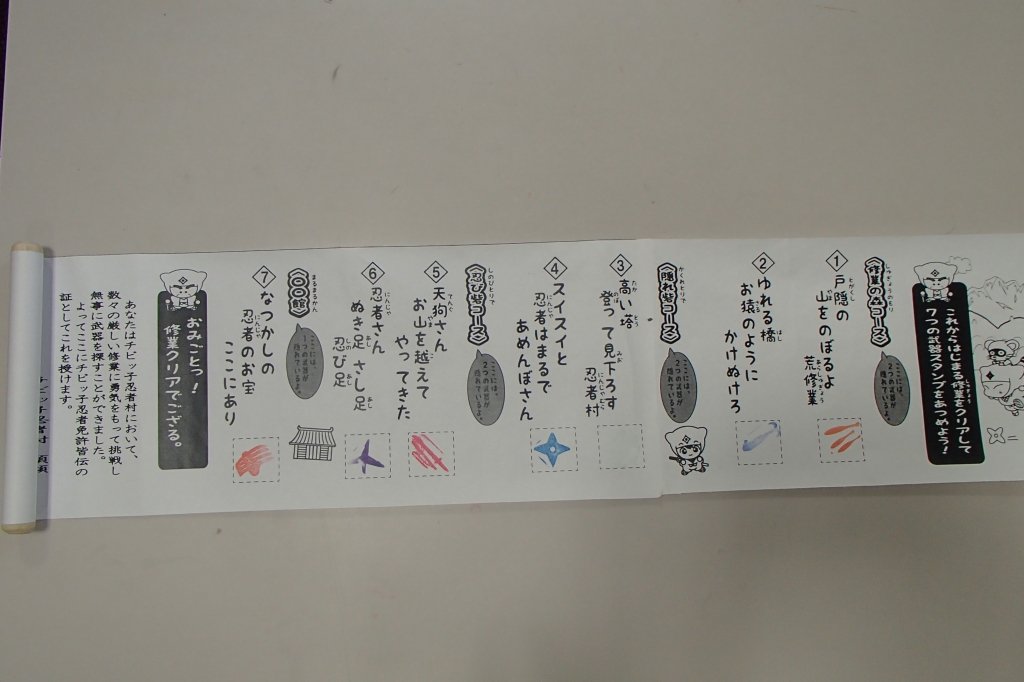 これからはじまる修業をクリアして
7つの武器スタンプをあつめよう！
修業の森コース
ここには、
2つの武器が
隠れているよ。
1
戸隠の
山をのぼるよ
荒修業
2
ゆれる橋
お猿のように
かけぬけろ
隠れ砦コース
ここには、
2つの武器が
隠れているよ。
3
高い塔
登って見下ろす
忍者村
4
スイスイと
忍者はまるで
あめんぼさん
忍び砦コース
ここには、
2つの武器が
隠れているよ。
5
天狗さん
お山を越えて
やってきた
6
忍者さん
ぬき足 さし足
忍び足
〇〇館
ここには、
1つの武器が
隠れているよ。
7
なつかしの
忍者のお宝
ここにあり
おみごとっ！
修業クリアでござる。
あなたはチビッ子忍者村において、
数々の厳しい修業に勇気をもって挑戦し
無事に武器を探すことができました。
よってここにチビッ子忍者免許皆伝の
証としてこれを授けます。
チビッ子忍者村